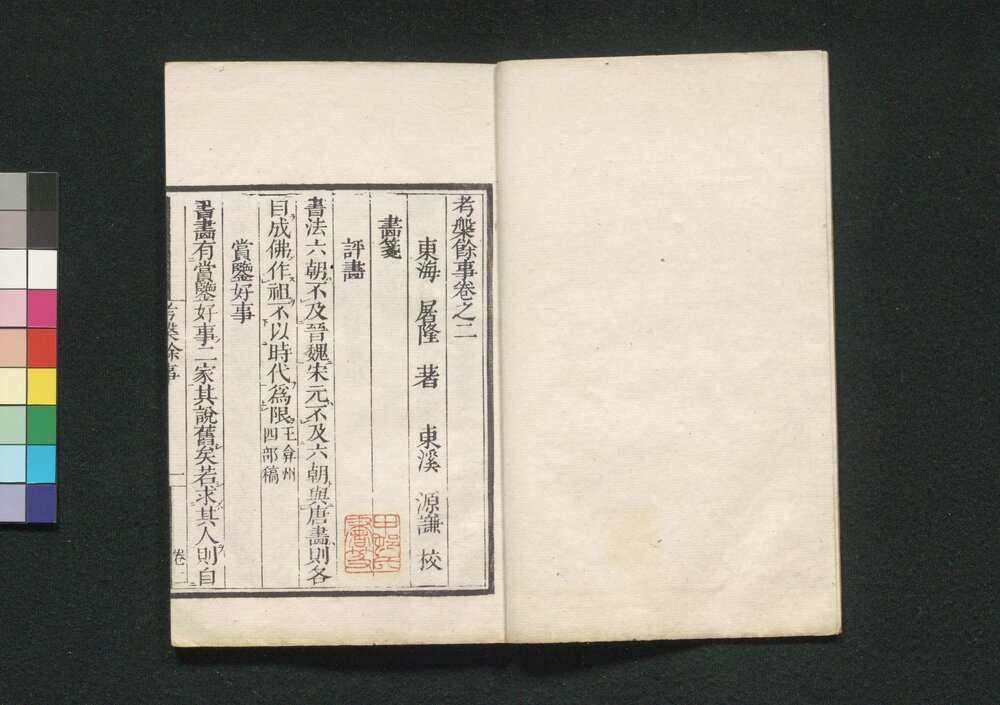 考槃餘事卷之二
東海 屠隆 著 東溪 源謙 挍
畵箋
評畵
書法六朝不及晉魏宋元不及六朝與唐畵則各
自成佛作祖不以時代爲限王弇州四部稿
賞鑒好事
書畵有賞鑒好事二家其說舊矣若求其人則自
考槃餘事 一 卷二